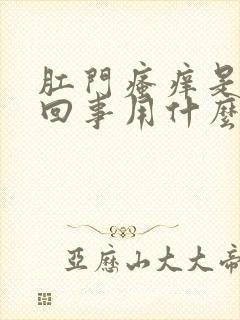 肛門瘙癢是
回事用什麼
亞歷山大大帝